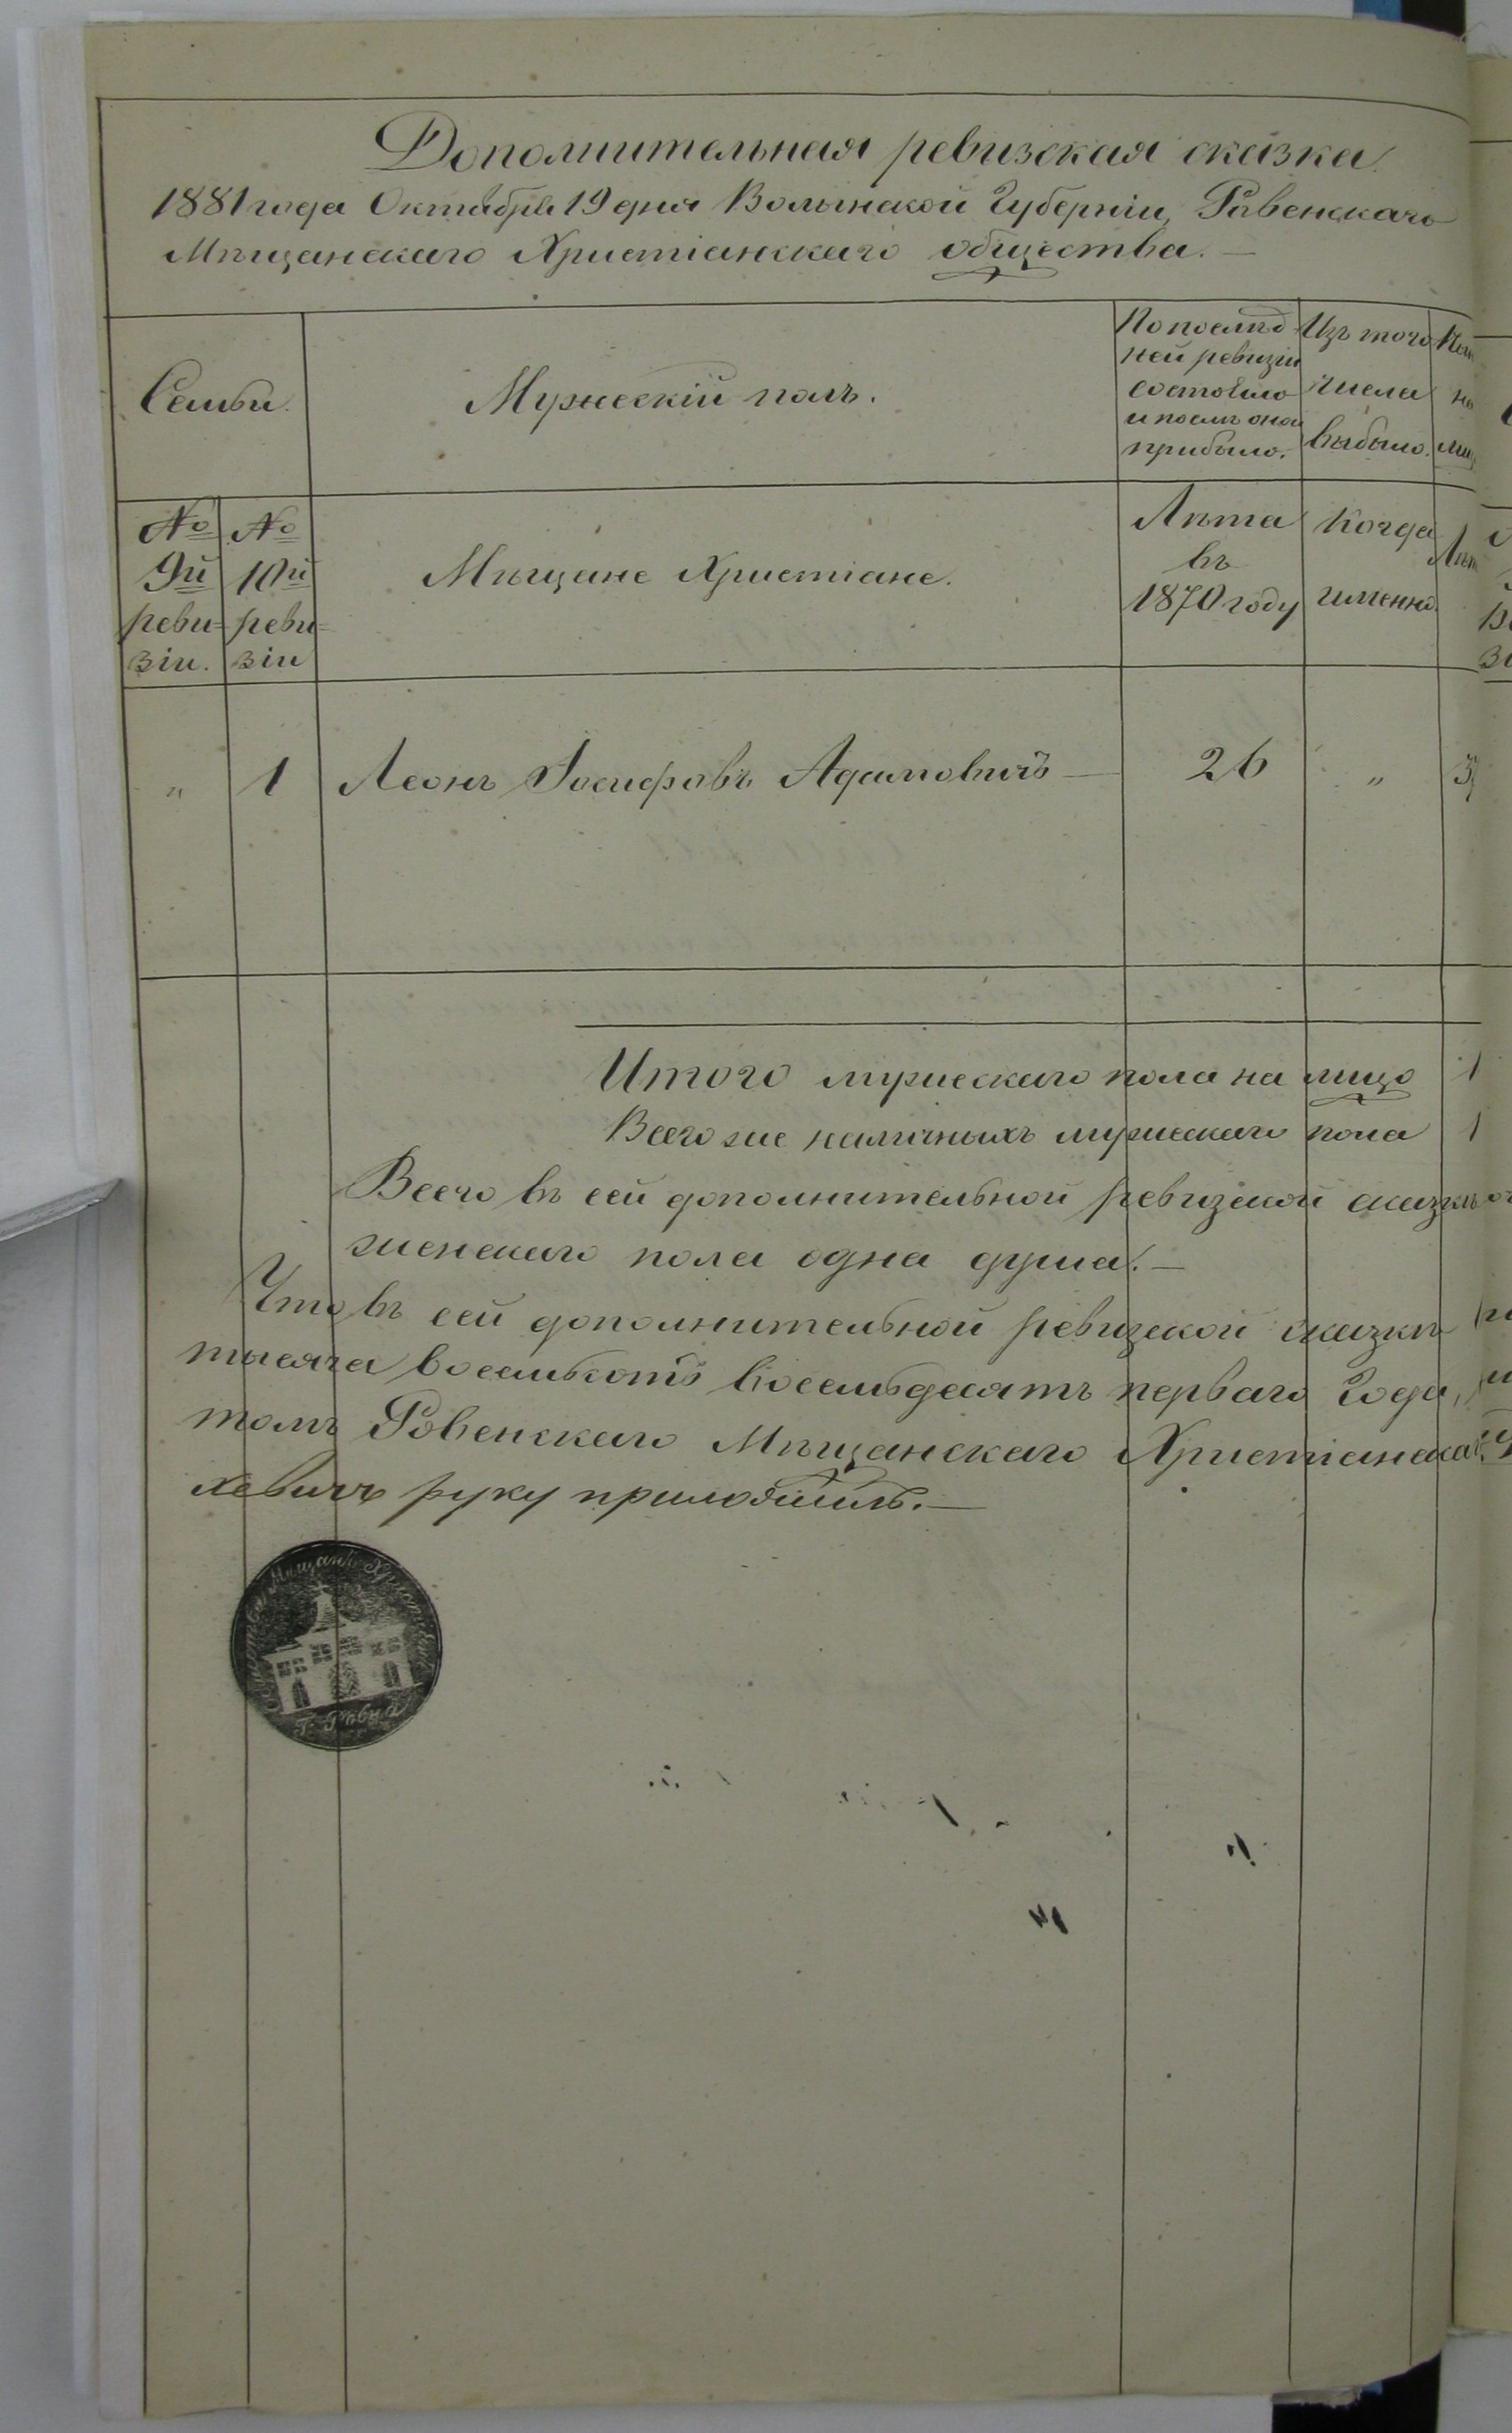 Дополнительная ревизская сказка
1881 года Октября 19 дня Волынской Губерніи, Ровенскаго
Мѣщанскаго Христіанскаго общества.
Семьи.
Мужескій полъ.
По послѣд
ней ревизіи
состояло
и послѣ оной
прибыло.
Изъ того
числа
выбыло.
№ 9й реви= зіи.
№ 10й реви= зіи
Мѣщане Христіане.
Лѣта
въ
1870 году
Когда
именно
„ 1 Леонъ Іосифовъ Адамовичъ — 26 „
Итого мужескаго пола на лицо 1
Всего же наличныхъ мужескаго пола 1
Всего въ сей дополнительной ревизской сказкѣ
женскаго пола одна душа. —
Что въ сей дополнительной ревизской сказкѣ
тысяча восемьсотъ восемьдесятъ перваго Года,
томъ Ровенскаго Мѣщанскаго Христіанска
хевичъ руку приложилъ. —
Мѣщанъ Христіанъ
Г. Ровна